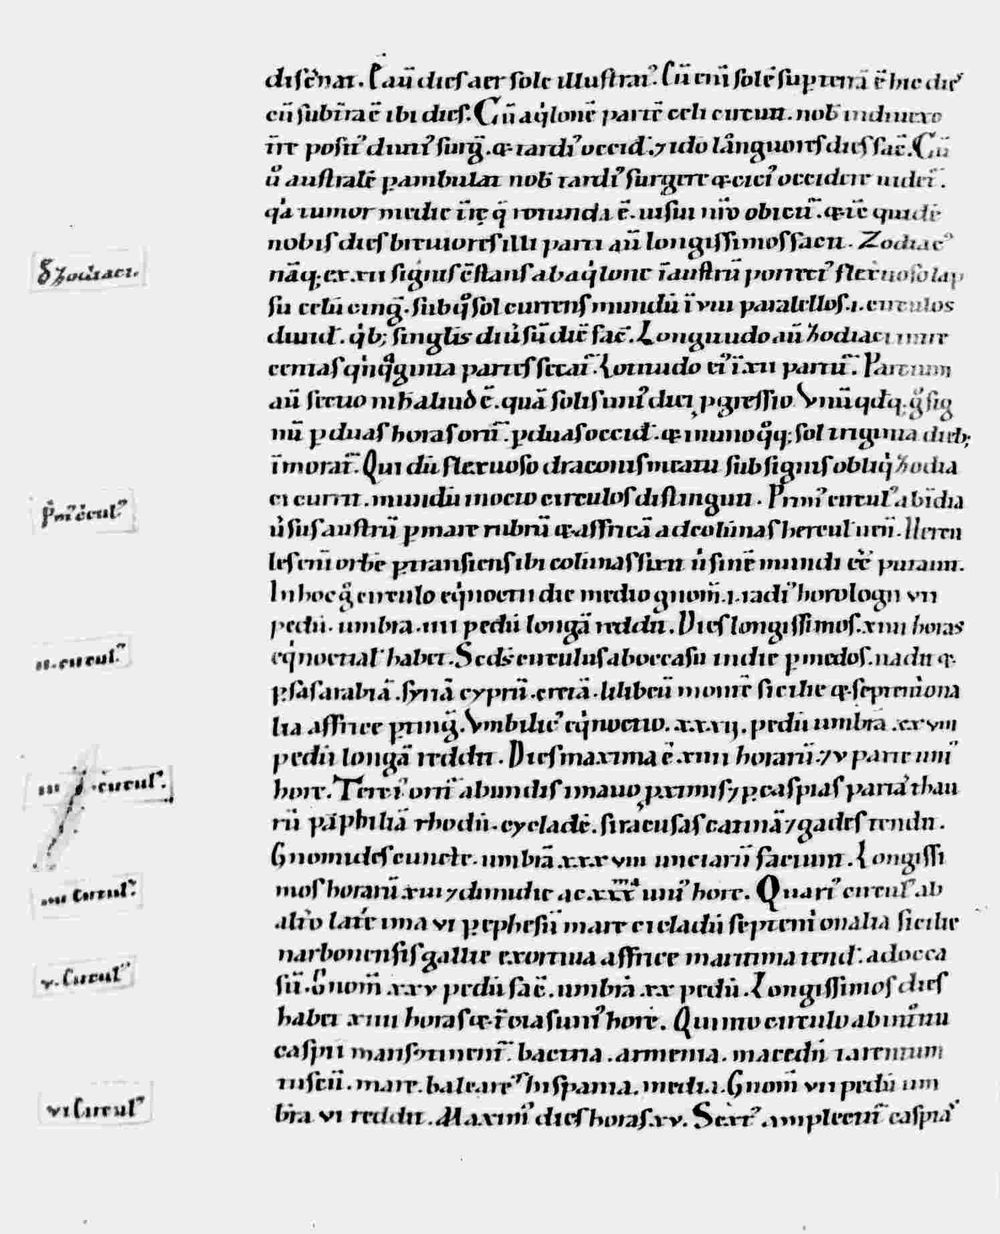 diſc̄nat. Ē aū dieſ aer ſole illuſtrat'. Cū eni ſolē ſup terrā ē hic die'
cū ſub tr̄a ē ibi dieſ. Cū aq̇lonē partē celi circuit. nob indiuexo
poſit' diuti' ſurg̃. & tardi' occid. ⁊ ido lânguoreſ dieſ fac̄. Cū
ů auſtralē pambulat nob tardi' ſurgere & citi' occidere uidet̄.
q̇a tumor medie t̄re q̄ rotunda ē. uiſui nr̄o obicit̄. & iē quidē
nobiſ dieſ breuioreſ illi parti aū longiſſimoſ facit. Zodiac'
nāq; ex xii ſigniſ c̄ſtanſ ab aq̇lone ī auſtrū porrect' flexuoſo lap
ſu celū cing̃. ſub q̊ ſol currenſ mundū ī viii paralelloſ .i. circuloſ
diuid̄. q̇b; ſinglis diu̇ſū diē fac̄. Longitudo aū zodiaci
centaſ q̇nq̊ginta parteſ ſecat̄. Latitudo ei' ī xii partit̄.
aū
nū p duaſ horaſ orit̄. p duaſ occid̄. & in uno q̊q; ſol triginta dieb;
īmorat̄. Qui dū flexuoſo draconiſ meatu ſub ſigniſ obliq̇ zodia
ci currit. mundū in octo circuloſ diſtinguit. Prim' circul' ab īdia
u̇ſuſ auſtrū p mare rubrū & affricā ad colūnaſ hercul' uenit̄. Hercu
leſ eni orbē ptranſienſ ibi colūnaſ fixit u̇ ſinē mundi eē putauit.
In hoc g̊ circulo eq̇noctii die medio gnom̄ .i. radi' horologii vii
pedū. umbrā .iiii pedū longā reddit. Dieſ longiſſimoſ .xiiii horaſ
eq̇noctial' habet. Scd̄s circuluſ ab occaſu indie p medoſ. uadit &
pſaſ arabiā. ſyriā cyprū. cretā. lilibeū montē ſicilie & ſeptentriona
lia affrice pting̃. Vmbilic' eq̇noctio. xxxv. pedū umbrā .xxviii
pedū longā reddit. Dieſ maxima ē .xiiii horarū. ⁊ v parte uni'
hore. Terci' orit̄ ab undiſ imauo p̱ximiſ ⁊ p caſpiaſ partā thau
rū pāphiliā rhodū. cycladē. ſiracuſaſ catinā ⁊ gadeſ tendit.
Gnomideſ cuncte. umbrā .xxxviii unciarū faciunt. Longiſſi
moſ horarū .xiiii ⁊ dimidie ac xxx uni' hore. Quart' circul' ab
alt̄o latē ima vi p epheſū mare cicladū ſeptentionalia ſicilie
narbonenſiſ gallie exortiua affrice maritima tend̄. ad occa
ſū. Gnom̄ .xxv pedū fac̄. umbrā .xx pedū. Longiſſimoſ dieſ
habet xiiii horaſ & t̄cia ſuni' horē. Quinto circulo ab
caſpii ⁊tinent̄. bactria. armenia. macedū tarentum
tuſcū. mare. balearē hiſpania. media. Gnom̄ vii pedū um
brā vi reddit. Maxim' dieſ horaſ .xv. Sext' amplectit̄ caſpiā
đ Zodiaci.
Pm' circul'
ii. circul'.
iii circul'.
iiii Circul'.
v. Circul'
vi Circul'